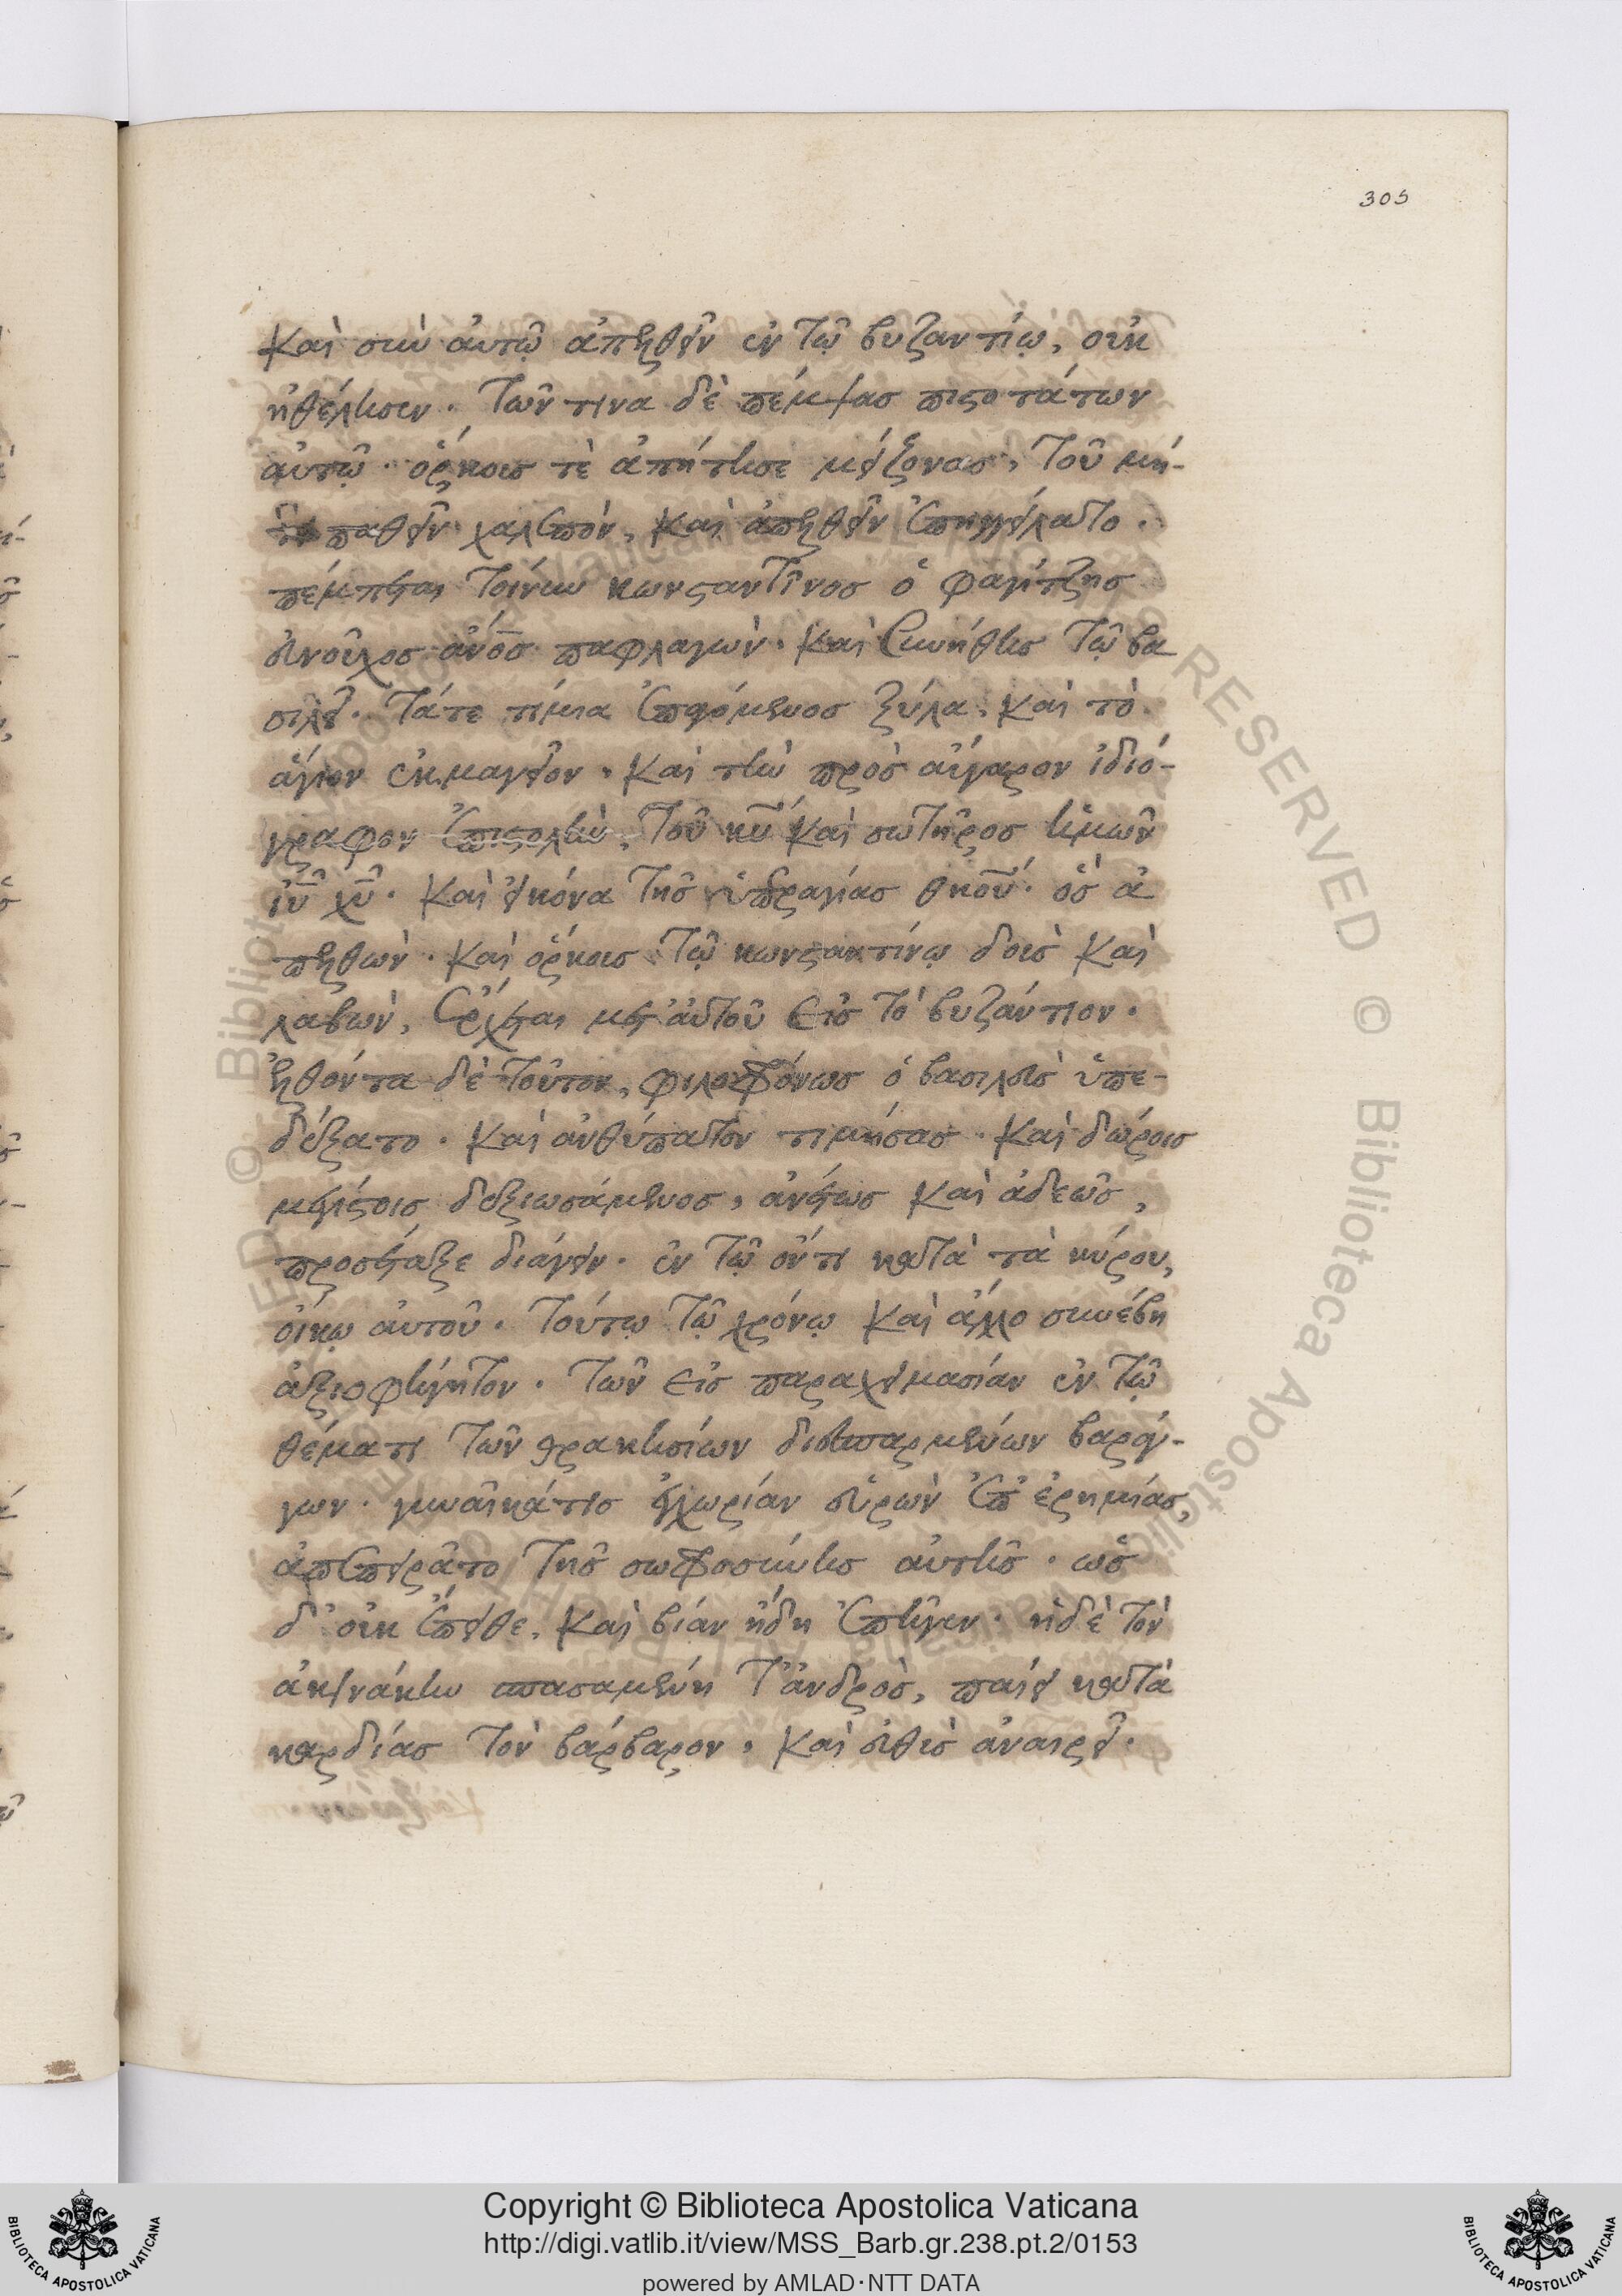 305
καὶ σὺν αὐτῷ ἀπελθεῖν ἐν τῷ βυζαντίῳ, οὐκ
ἠθέλησεν. τῶν τινα δὲ πέμψας πιστοτάτων
αὐτῷ. ὅρκοις τὲ ἀπήτησε μείζονας, τοῦ μή-
παθεῖν χαλεπὸν, καὶ ἀπελθεῖν ἐπηγγείλατο.
πέμπεται τοίνυν κωνσταντῖνος ὁ φαγίτζης
εὐνοῦχος ἄνος παφλαγὼν. καὶ συνήθης τῷ βα
σιλεῖ. τάτε τίμια ἐπιφερόμενος ξύλα. καὶ τὸ
ἅγιον ἐκμαγεῖον. καὶ τὴν πρὸς αὔγαρον ἰδιό-
γραφον ἐπιστολὴν, τοῦ κυ καὶ σωτῆρος ἡμῶν
ιυ χυ. καὶ εἰκόνα τῆς ὑπεραγίας θκου. ὃς ἀ
πελθὼν. καὶ ὅρκοις τῷ κωνσταντίνῳ δοὺς καὶ
λαβὼν, ἔρχεται μετ' αὐτοῦ εἰς τὸ βυζάντιον.
ἐλθόντα δὲ τοῦτον, φιλοφρόνως ὁ βασιλεὺς ὑπε-
δέξατο. καὶ ἀνθύπατον τιμήσας. καὶ δώροις
μεγίστοις δεξιωσάμενος, ἀνέτως καὶ ἀδεῶς,
προσέταξε διάγειν. ἐν τῷ ὄντι κατὰ τὰ κύρου,
οἴκῳ αὐτοῦ. τούτῳ τῷ χρόνῳ καὶ ἄλλο συνέβη
ἀξιοαφήγητον. τῶν εἰς παραχειμασίαν ἐν τῷ
θέματι τῶν θρακησίων διεσπαρμένων βαράγ-
γων. γυναῖκά τις ἐγχωρίαν εὑρὼν ἐπ' ἐρημίας,
ἀπεπειρᾶτο τῆς σωφροσύνης αὐτῆς. ὡς
δ' οὐκ ἔπειθε, καὶ βίαν ἤδη ἐπῆγεν. ἡ δὲ τὸν
ἀκινάκην σπασαμένη τ' ἀνδρὸς, παίει κατὰ
καρδίας τὸν βάρβαρον, καὶ εὐθὺς ἀναιρεῖ.
Copyright © Biblioteca Apostolica Vaticana
http://digi.vatlib.it/view/MSS_Barb.gr.238.pt.2/0153
powered by AMLAD·NTT DATA